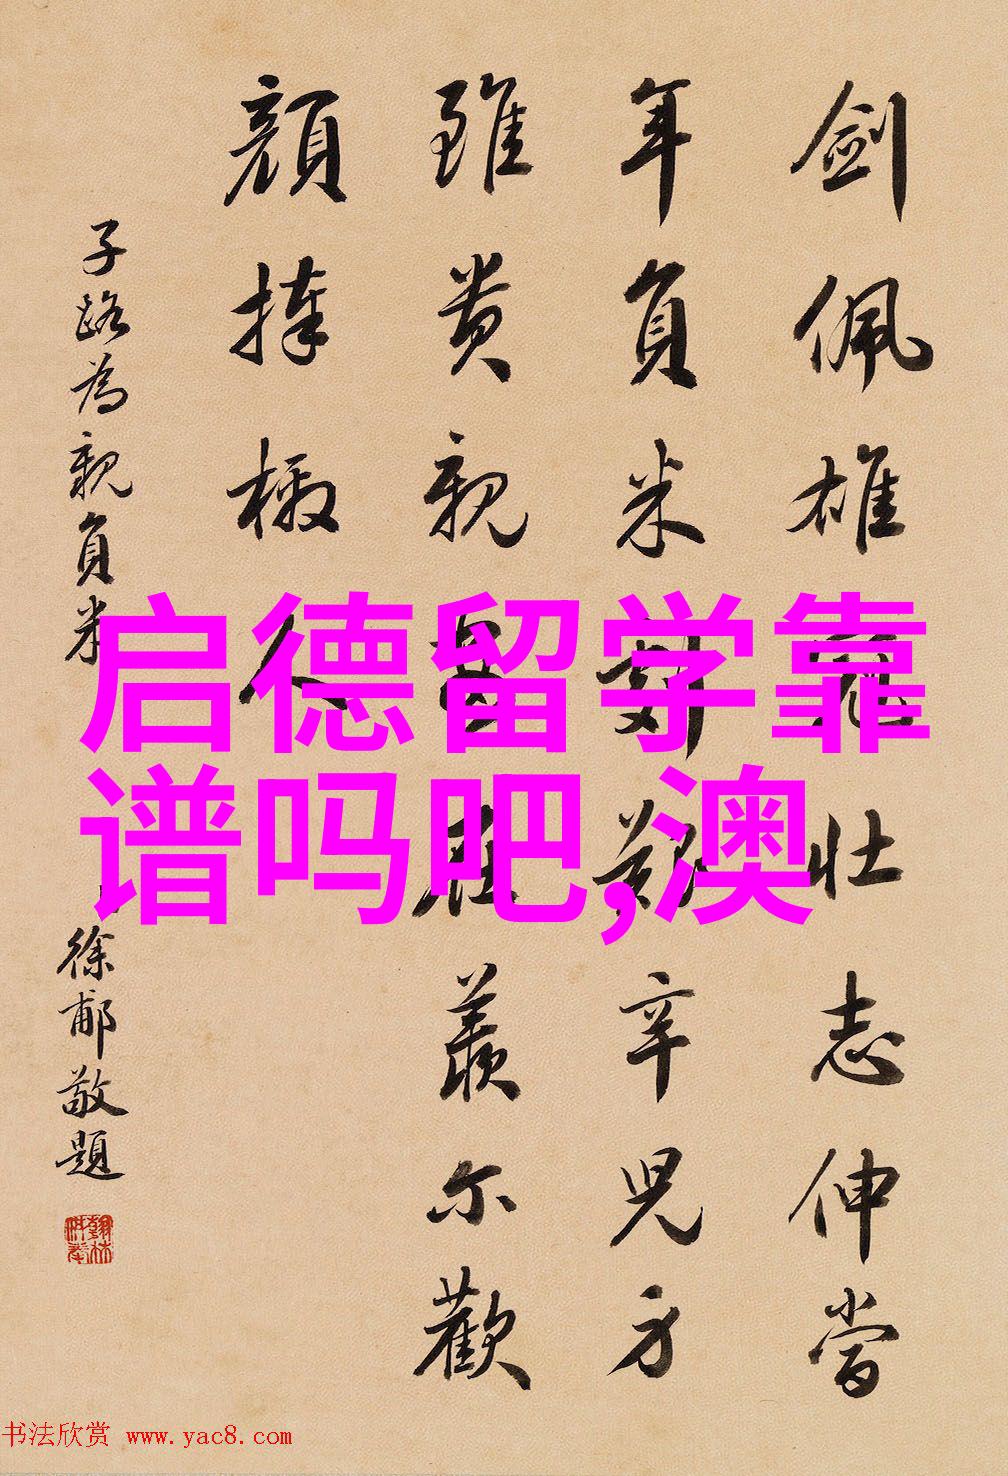 劍佩雄冠壯志伸當
年負米艱辛兒方
雖貴親在羨尔歡
顏捧檄人
子路為親負米
徐郙敬題
启德留学靠
谱吗吧,澳
书法欣赏 www.yac8.com